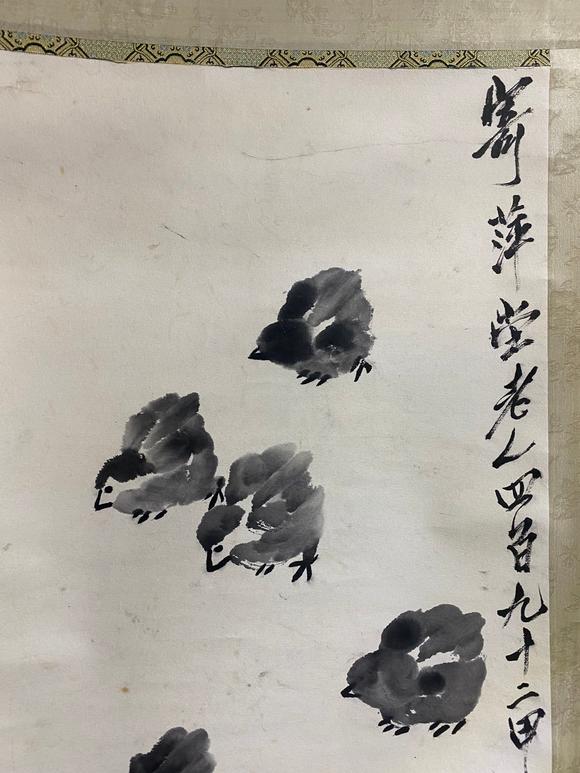 寄萍堂老人四百九十二甲